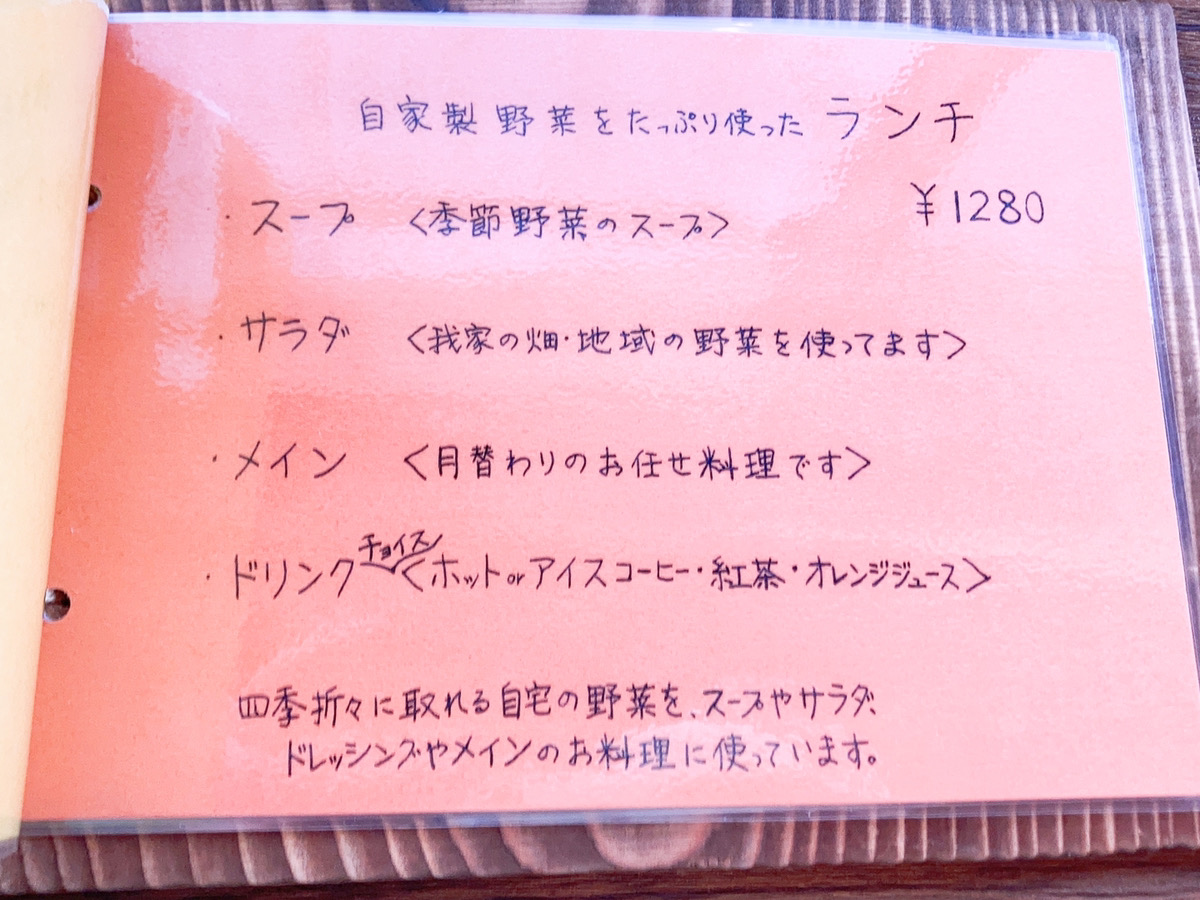 自家製野菜をたっぷり使ったランチ
・スープ 〈季節野菜のスープ〉 ¥1280
・サラダ 〈我家の畑・地域の野菜を使ってます〉
・メイン 〈月替わりのお任せ料理です〉
チョイス
・ドリンク 〈ホットorアイスコーヒー・紅茶・オレンジジュース〉
四季折々に取れる自宅の野菜を、スープやサラダ、
ドレッシングやメインのお料理に使っています。